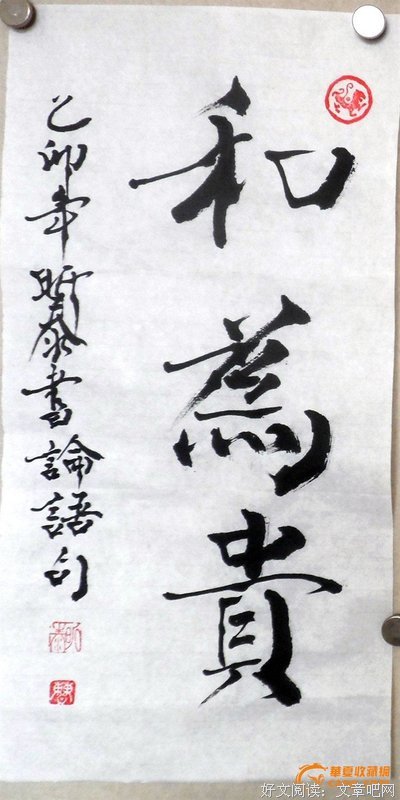 和為貴
己卯年泰書論語句
華夏收藏網
好文阅读：文章吧网